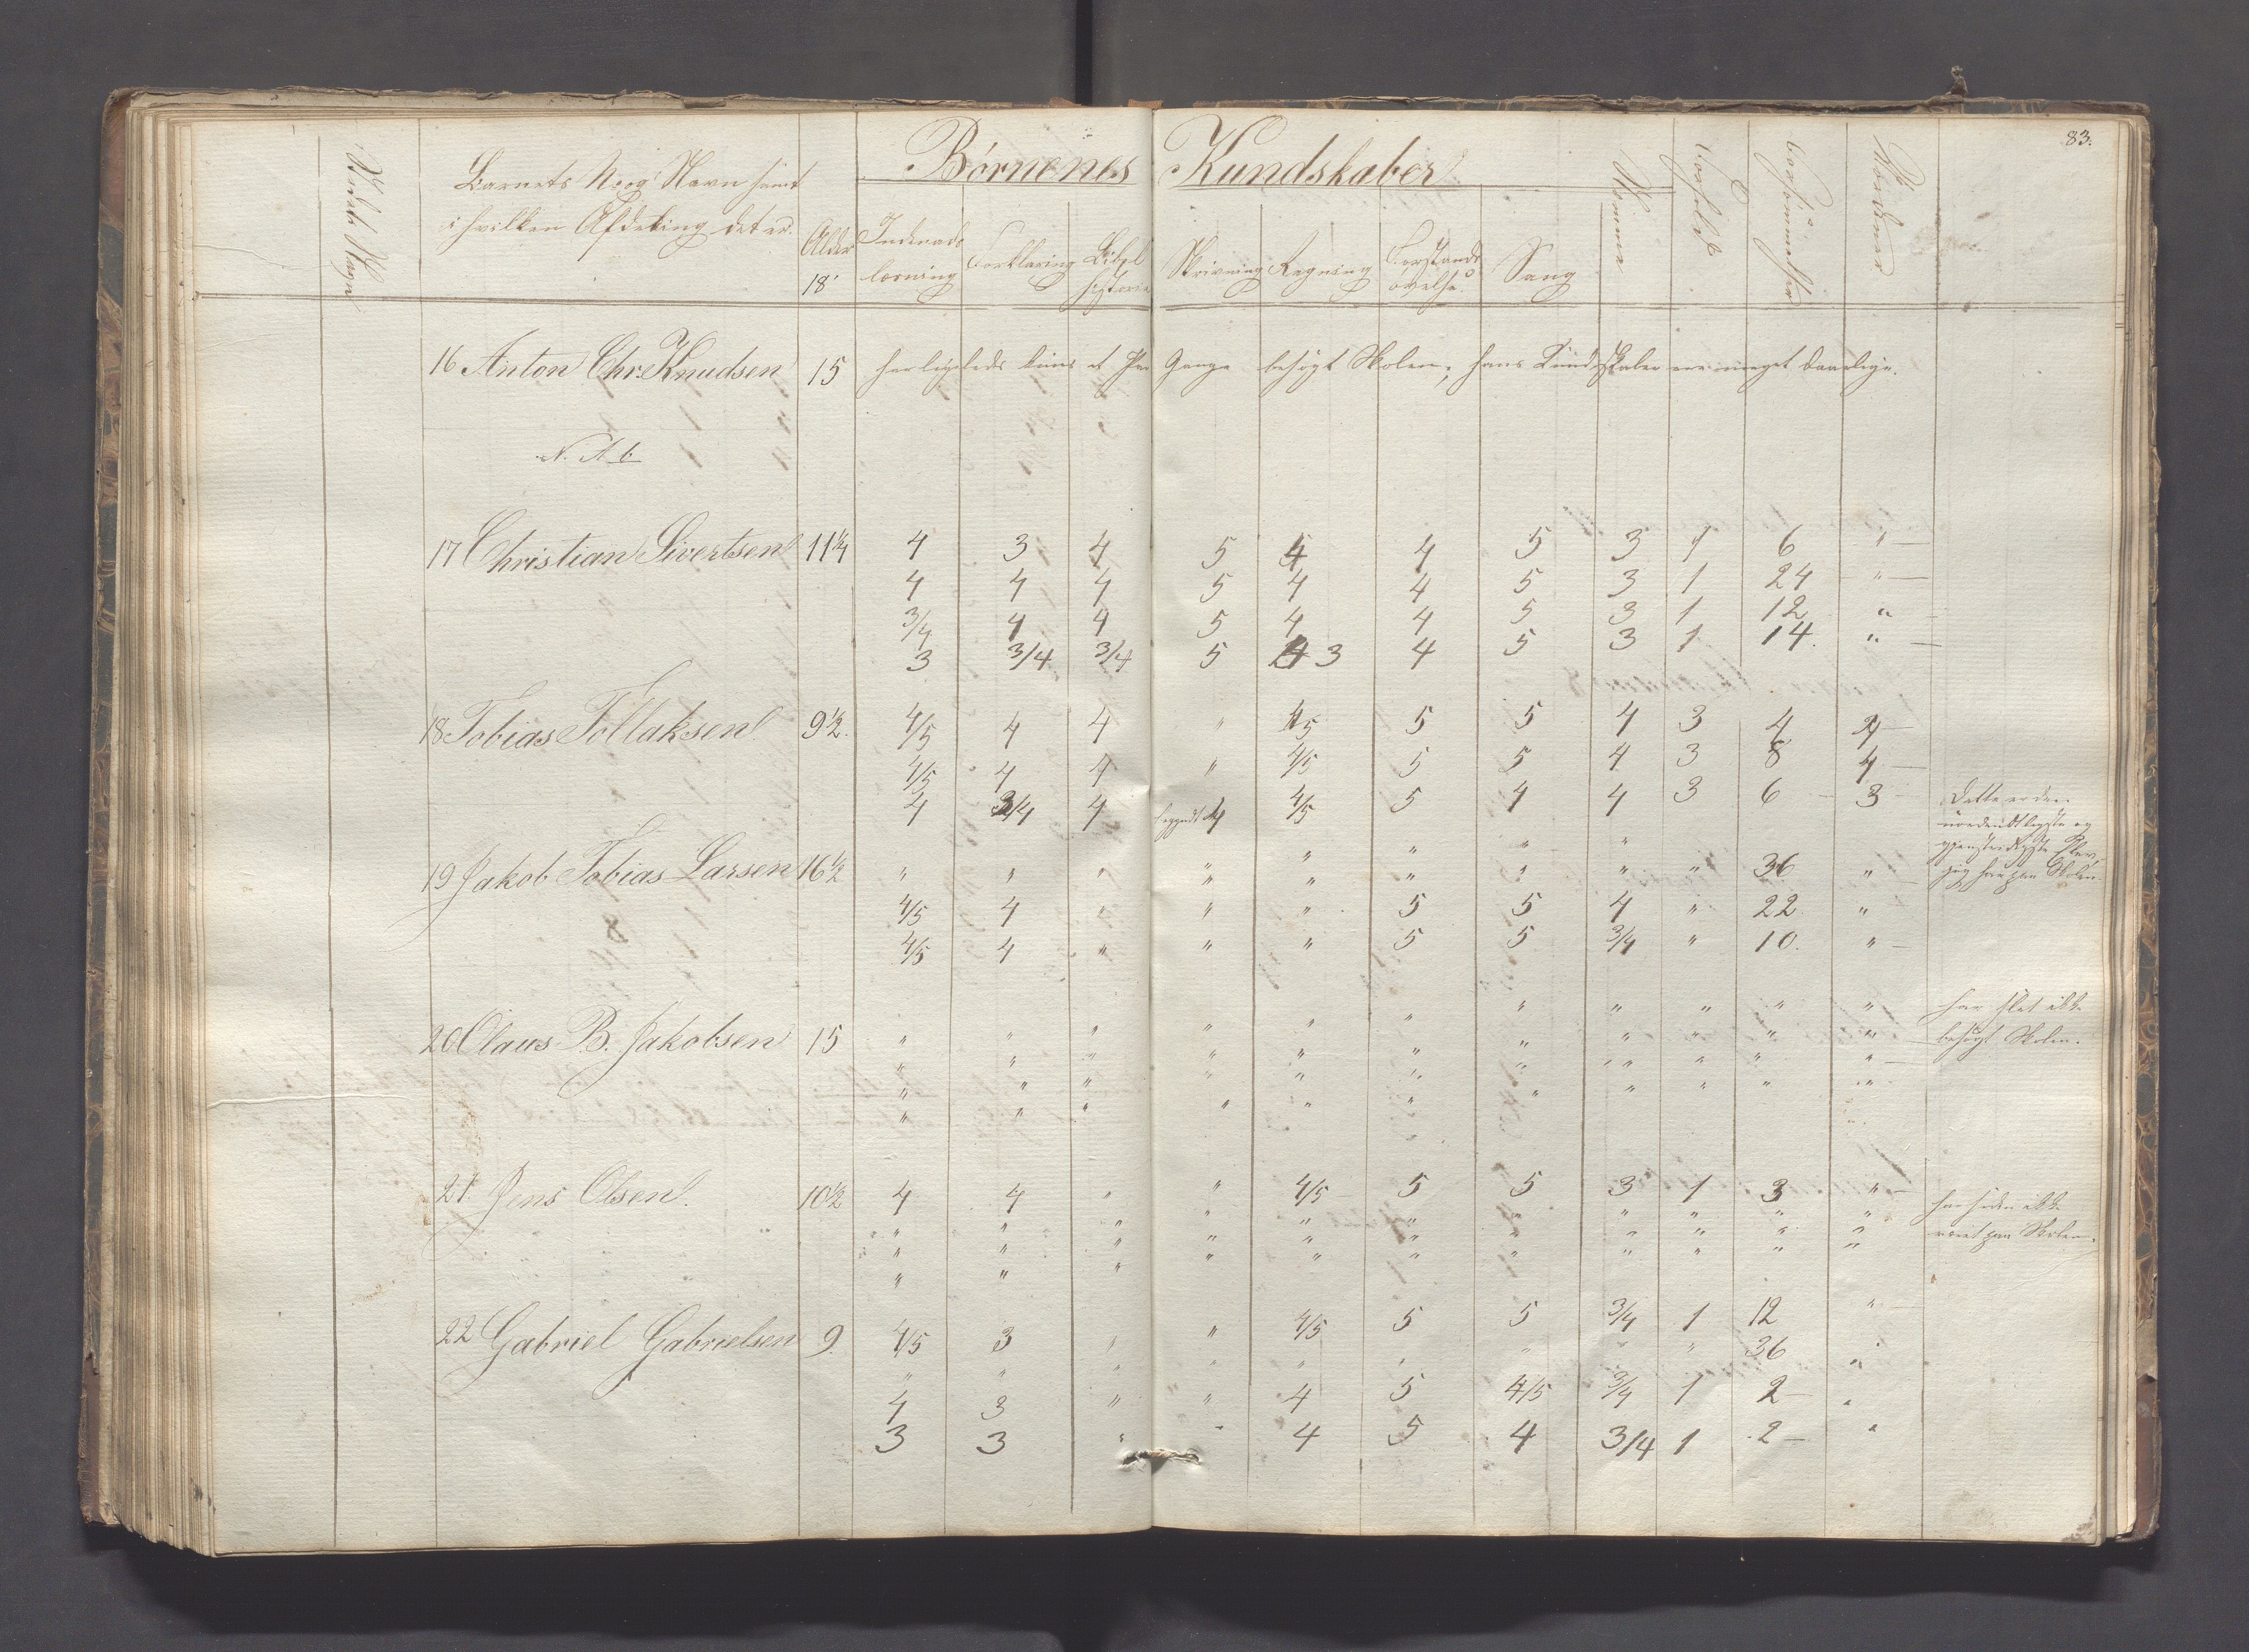 83.
Børnenes Kundskaber
Barnets No og Navn samt
i hvilken Afdeling det er.
Alder
18
Indenads
læsning
Forklaring
Bibel
historie
Skrivning
Regning
Forstands
øvelse.
Sang
Evner
Forhold
Forsømmelser
16 Anton Chr. Knudsen 15 har ligeledes kuns et Par Gange besøgt Skolen; hans Kundskaber ere meget daarlige.
N. A. b.
17 Christian Sivertsen 11 1/4 4 3 4 5 4 4 5 3 1 6 "
4 4 4 5 4 4 5 3 1 24 "
3/4 4 4 5 4 4 5 3 1 12 "
3 3/4 3/4 5 3 4 5 3 1 14. "
18 Tobias Tollaksen 9 1/2. 4/5 4 4 " 4/5 5 5 4 3 4 4
4/5 4 4 " 4/5 5 5 4 3 8 4
4 3/4 4 begyndt 4 4/5 5 4 4 3 6 3
Dette er den
uordentligste og
gjenstridigste Elev,
jeg har paa Skolen.
19 Jakob Tobias Larsen 16 1/2 " " " " " " " " " 36 "
4/5 4 " " " 5 5 4 " 22 "
4/5 4 " " " 5 5 3/4 " 10. "
20 Olaus B. Jakobsen 15 " " " " " " " " " " "
har slet ikke
besøgt Skolen.
" " " " " " " " " " "
" " " " " " " " " " "
" " " " " " " " " " "
21 Jens Olsen. 10 1/2 4 4 " " 4/5 5 5 3 1 3 "
har siden ikke
været paa Skolen.
" " " " " " " " " " "
" " " " " " " " " " "
" " " " " " " " " " "
22 Gabriel Gabrielsen 9. 4/5 3 " " 4/5 5 5 3/4 1 12 "
" " " " " " " " " 36 "
4 3 " " 4 5 4/5 3/4 1 2 "
3 3 " " 4 5 4 3/4 1 2 "